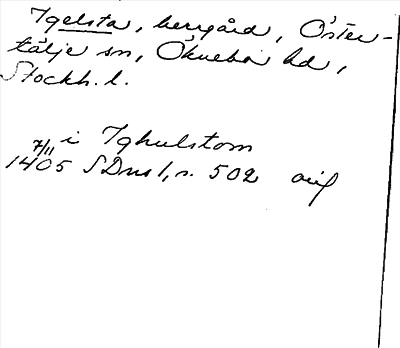 Igelsta, herrgård, Öster-
tälje sn, Öknebo hd,
Stockh. l.
7/11 i Ighulstom
1405 SDns 1, s. 502 orig